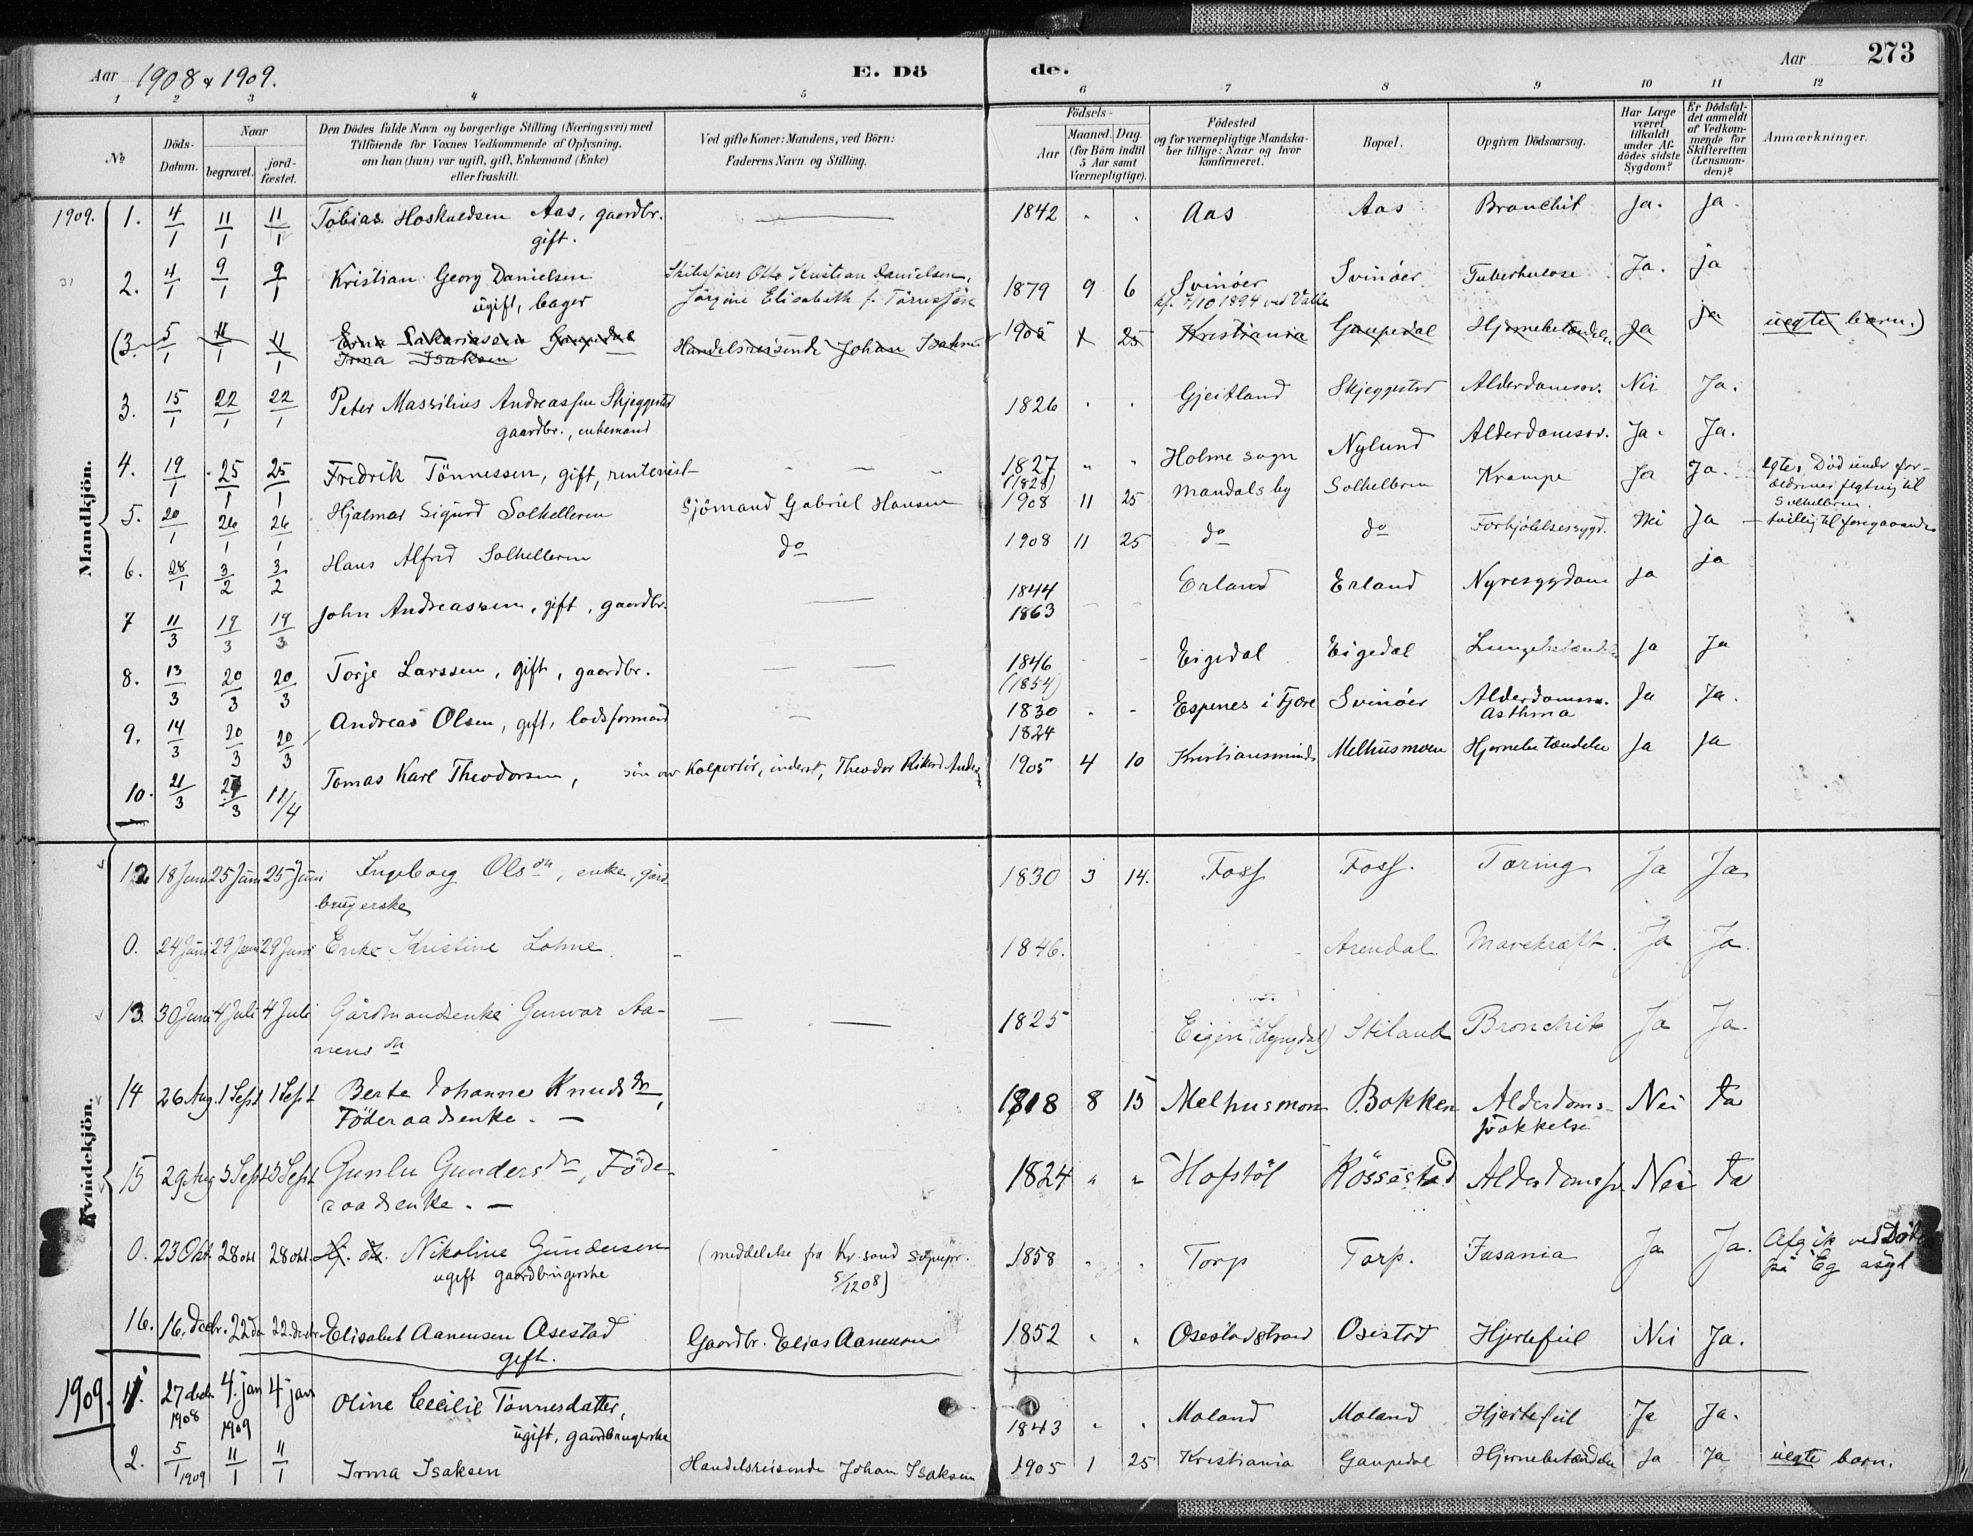 Aar 1908 & 1909. E. Dö de. Aar 273
1 2 3 4 5 6 7 8 9 10 11 12
No
Döds-
Datum.
Naar
begravet.
jord-
fæstet.
Den Dödes fulde Navn og borgerlige Stilling (Næringsvei) med
Tilföiende for Voxnes Vedkommende af Oplysning,
om han (hun) var ugift, gift, Enkemand (Enke)
eller fraskilt.
Ved gifte Koner: Mandens, ved Börn:
Faderens Navn og Stilling.
Födsels-
Aar
Maaned. Dag.
(for Börn indtil
5 Aar samt
Værnepligtige).
Födested
og for værnepligtige Mandska-
ber tillige: Naar og hvor
konfirmeret.
Bopæl.
Opgiven Dödsaarsag.
Har Læge
været
tilkaldt
under Af-
dödes sidste
Sygdom?
Er Dödsfal-
det anmeldt
af Vedkom-
mende for
Skifteretten
(Lensman-
den)?
Anmærkninger.
Mandkjön.
1909. 1. 4/1 11/1 11/1 Tobias Hoskuldsen Aas, gaardbr. 1842 Aas Aas Bronchit Ja. Ja.
gift.
2. 4/1 9/1 9/1 Kristian Georg Danielsen Skibsfører Otto Kristian Danielsen, 1879 9 6 Svinöer Svinöer Tuberkulose Ja. ja
ugift, bager Jörgine Elisabeth f. kf. 7/10 1894 ved Valle
(3. 5/1 11/1 11/1 Erna Sakariasen Gaupdal Handelsreisende Johan Isaksen 1905 1 25 Kristiania Gaupedal Hjernebetændelse Ja ja uegte barn.)
Irma Isaksen
3. 15/1 22/1 22/1 Peter Massilius Andreassen Skjeggestad 1826 Gjeitland Skjeggestad Alderdomssv. Nei Ja.
gaardbr., enkemand
4. 19/1 25/1 25/1 Fredrik Tönnessen, gift, rentenist 1827 Holme sogn Nylund Alderdomssv. Ja. Ja.
(1828)
5. 20/1 26/1 26/1 Hjalmar Sigurd Solhelleren Sjömand Gabriel Hansen 1908 11 25 Mandals by Solhelleren Krampe Ja Ja. egte. Död under for-
ældrenes flytning til
Solhelleren.
6. 28/1 3/2 3/2 Hans Alfred Solhelleren do 1908 11 25 do do Forkjölelsessygd. Nei Ja tvilling til foregaaende
7 11/3 19/3 19/3 John Andreassen, gift, gaardbr. 1844 Erland Erland Nyresygdom Ja ja
1863
8. 13/3 20/3 20/3 Torje Larssen, gift, gaardbr. 1846 Eigedal Eigedal Lungebetændelse Ja Ja
(1854)
9. 14/3 20/3 20/3 Andreas Olsen, gift, lodsformand 1830 Espenes i Fjære Svinöer Alderdomssv. Ja Ja.
1824 Asthma
10. 21/3 27/3 11/4 Tomas Karl Theodorsen, sön av Kolportör, inderst, Theodor Rikard Anders 1905 4 10 Kristiansminde Melhusmoen Hjernebetændelse Ja Ja
Kvindekjön.
12 18 Juni 25 Juni 25 Juni Ingeborg Olsdn, enke, gård 1830 3 14. Foss Foss. Tæring Ja Ja
brugerske
0. 24 Juni 29 Juni 29 Juni Enke Kristine Lohne 1846. Arendal Mavekræft. Ja Ja.
13. 30 Juni 4 Juli 4 Juli Gårdmandsenke Gunvor Aa- 1825 Eigen (Lyngdal) Stiland Bronchit Ja Ja.
nensdn
14 26 Aug. 1 Sept 1 Sept Berte Johanne Knudsdn, 1818 8 15 Melhusmon Bakken Alderdoms- Nei Ja
Föderaadsenke. — svakkelse
15 29 Aug 3 Sept 3 Sept Gunlu Gundersdn, Föde- 1824 Hofstöl Rössestad Alderdomssv Nei Ja
raadsenke. —
0. 23 Okt 28 okt 28 okt. Nikoline Gundersen (meddelelse fra Kr.sand sognepr. 1858 Torp Torp. Fasania Ja Ja. Afgik ved Döden
ugift gaardbrugerske 5/12 08) på Eg asyl
16. 16. decbr. 22 de 22. decbr. Elisabet Aanensen Osestad Gaardbr. Elias Aanensen 1852 Osestadstrand Osestad Hjertefeil Nei Ja.
gift.
1909. 1. 27 decb. 1908 4. jan 1909 4 jan Oline Cecilie Tönnesdatter, 1843 Moland Moland Hjertefeil Ja Ja.
ugift, gaardbrugerske
2. 5/1 1909 11/1 11/1 Irma Isaksen Handelsreisende Johan Isaksen 1905 1 25 Kristiania Gaupedal Hjernebetændelse Ja Ja uegte barn.